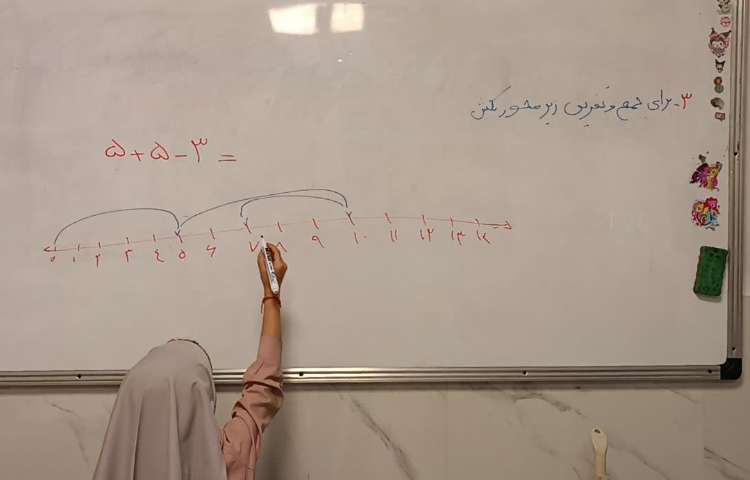 ۳- برای جمع و تفریق زیر محور بکش
۵+۵-۳=
۰ ۱ ۲ ۳ ۴ ۵ ۶ ۷ ۸ ۹ ۱۰ ۱۱ ۱۲ ۱۳ ۱۴